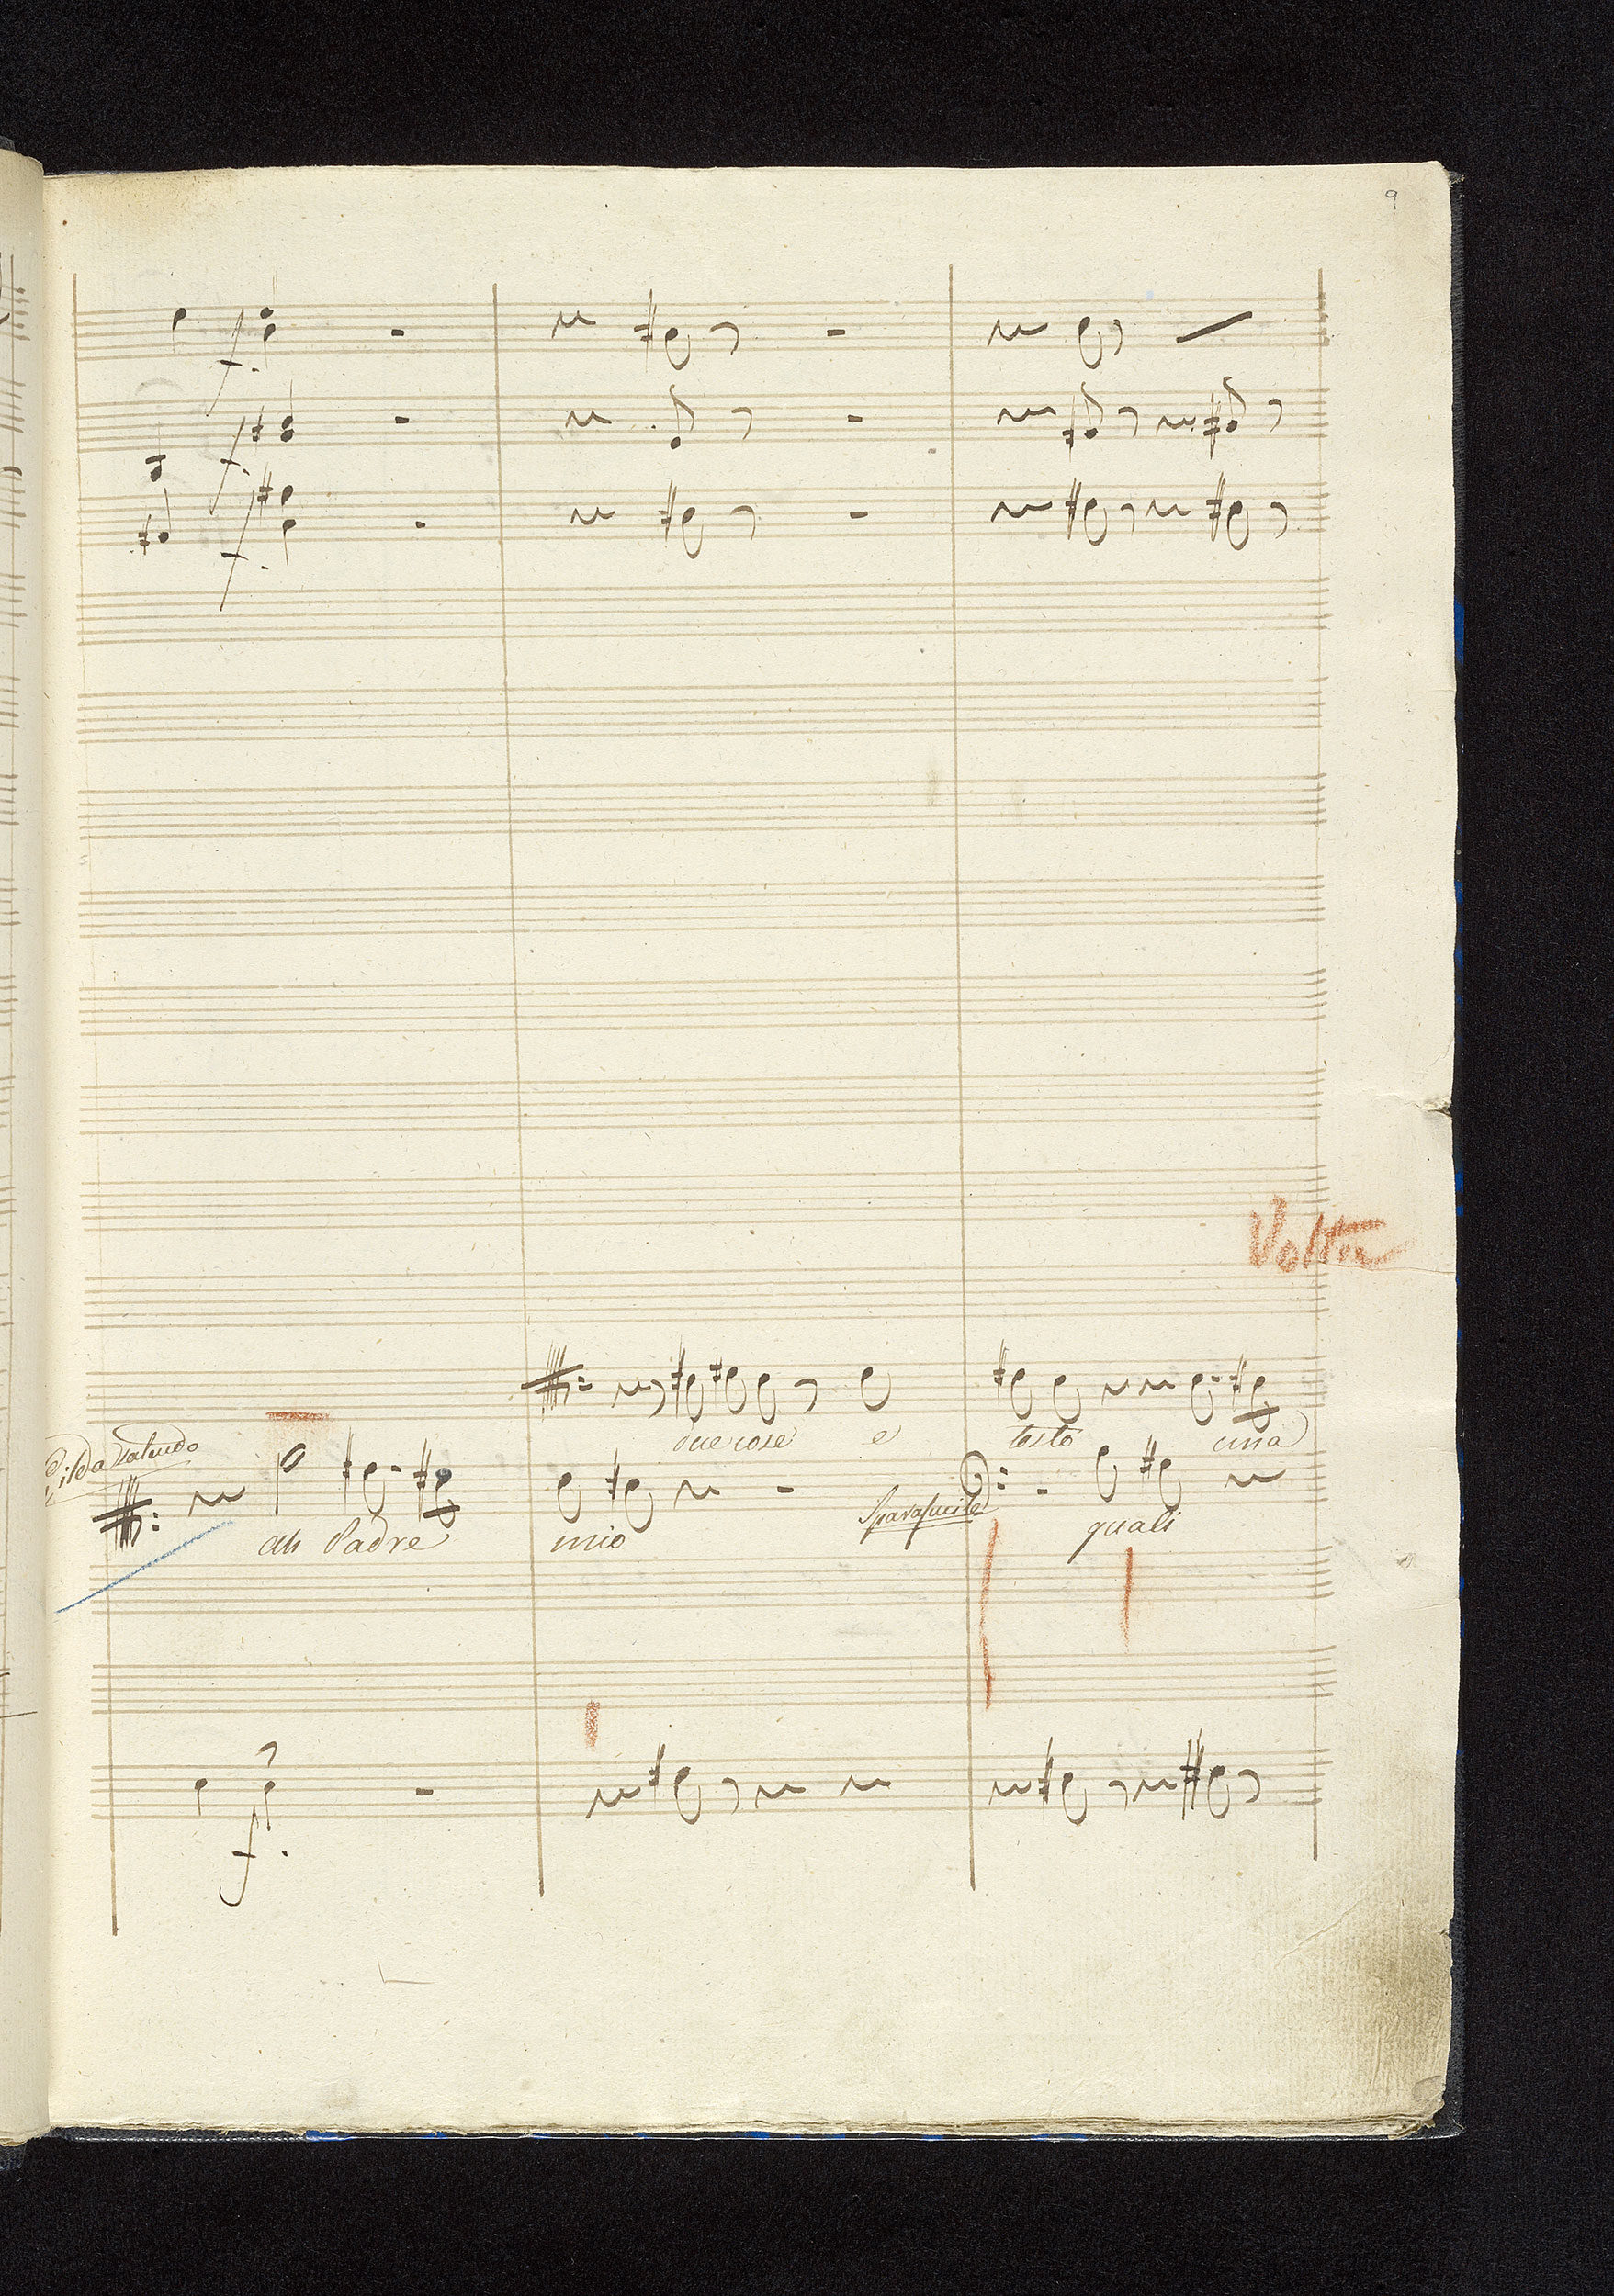 9
f.
f.
f.
Volta
due cose e testo una
Gilda Saluido
ah Padre mio
Sparafucile
quali
f.